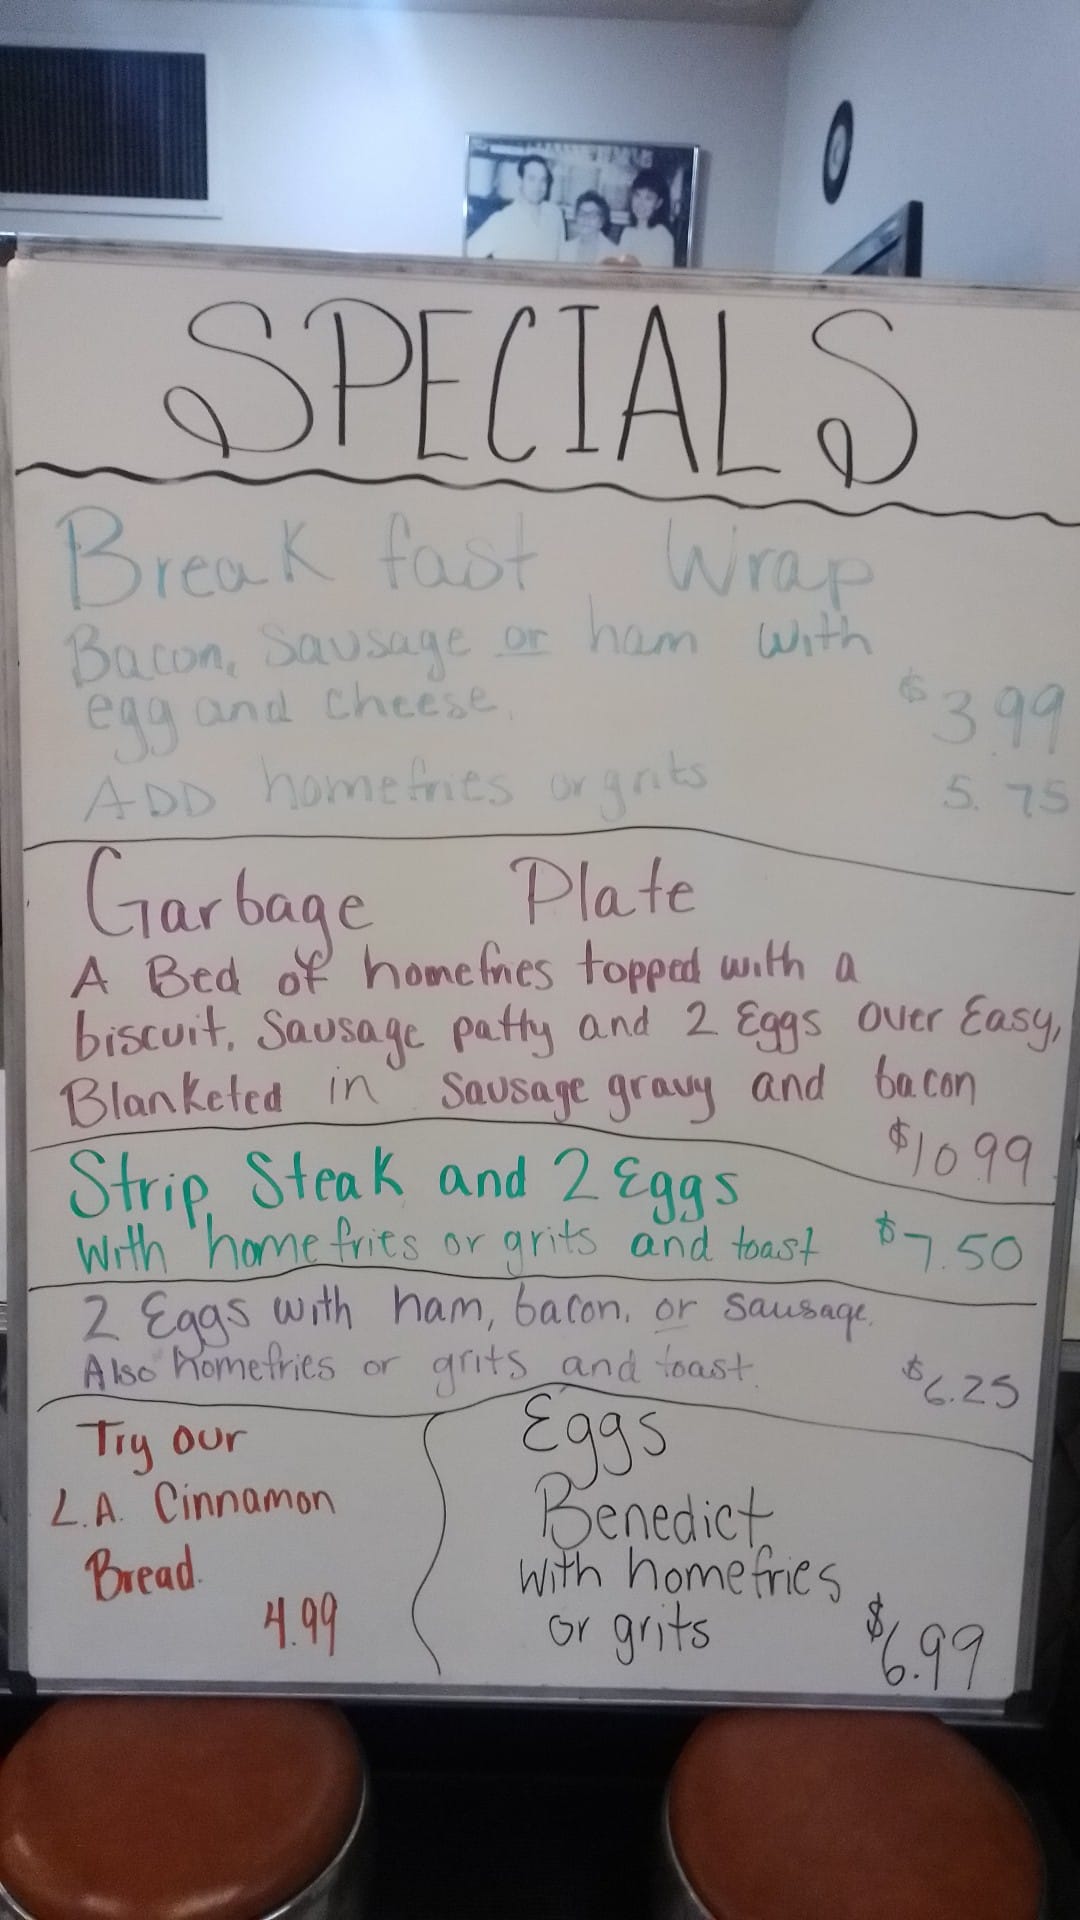 SPECIALS
Breakfast Wrap
Bacon, Sausage or ham with
egg and cheese.
$3.99
ADD homefries or grits 5.75
Garbage Plate
A Bed of homefries topped with a
biscuit, Sausage patty and 2 Eggs over Easy,
Blanketed in Sausage gravy and bacon
$10.99
Strip Steak and 2 Eggs
with homefries or grits and toast $7.50
2 Eggs with ham, bacon, or sausage.
Also homefries or grits and toast. $6.25
Try our
L.A. Cinnamon
Bread.
4.99
Eggs
Benedict
with homefries
or grits $6.99